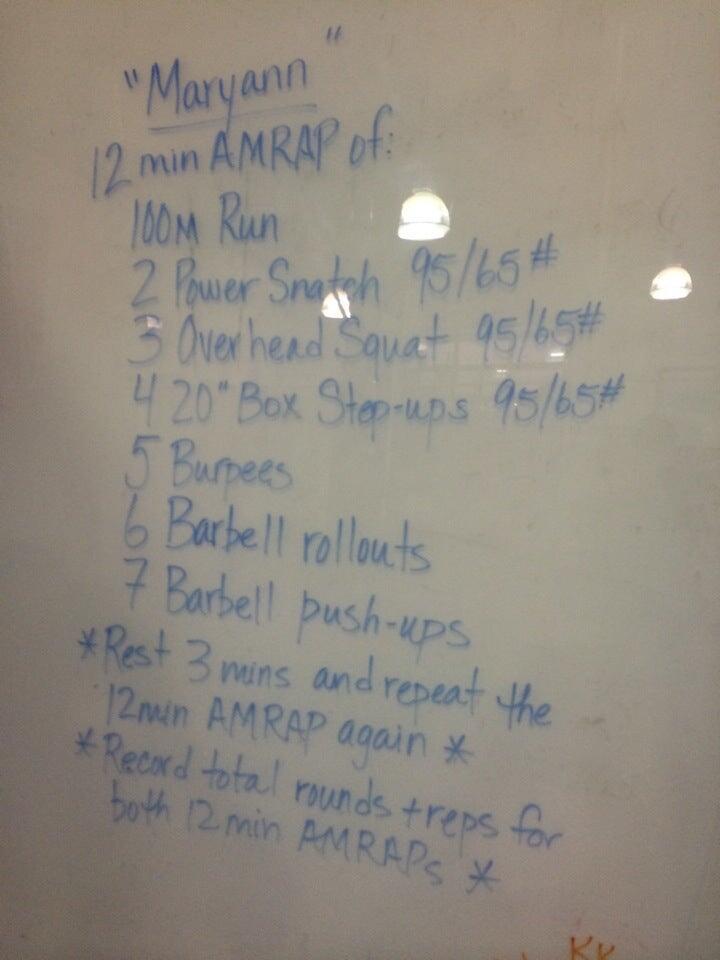 "Maryann"
12 min AMRAP of:
100M Run
2 Power Snatch 95/65#
3 Overhead Squat 95/65#
4 20" Box Step-ups 95/65#
5 Burpees
6 Barbell rollouts
7 Barbell push-ups
*Rest 3 mins and repeat the
12min AMRAP again *
*Record total rounds + reps for
both 12 min AMRAPs *